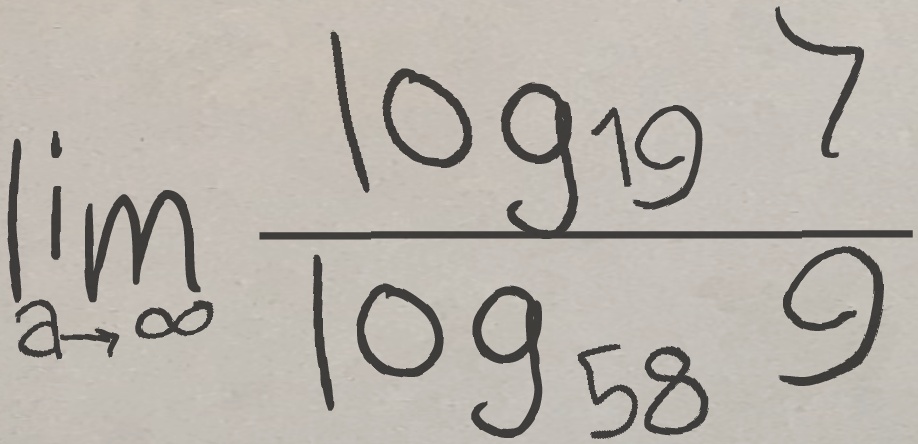 lim a→∞ log₁₉ 7 / log₅₈ 9